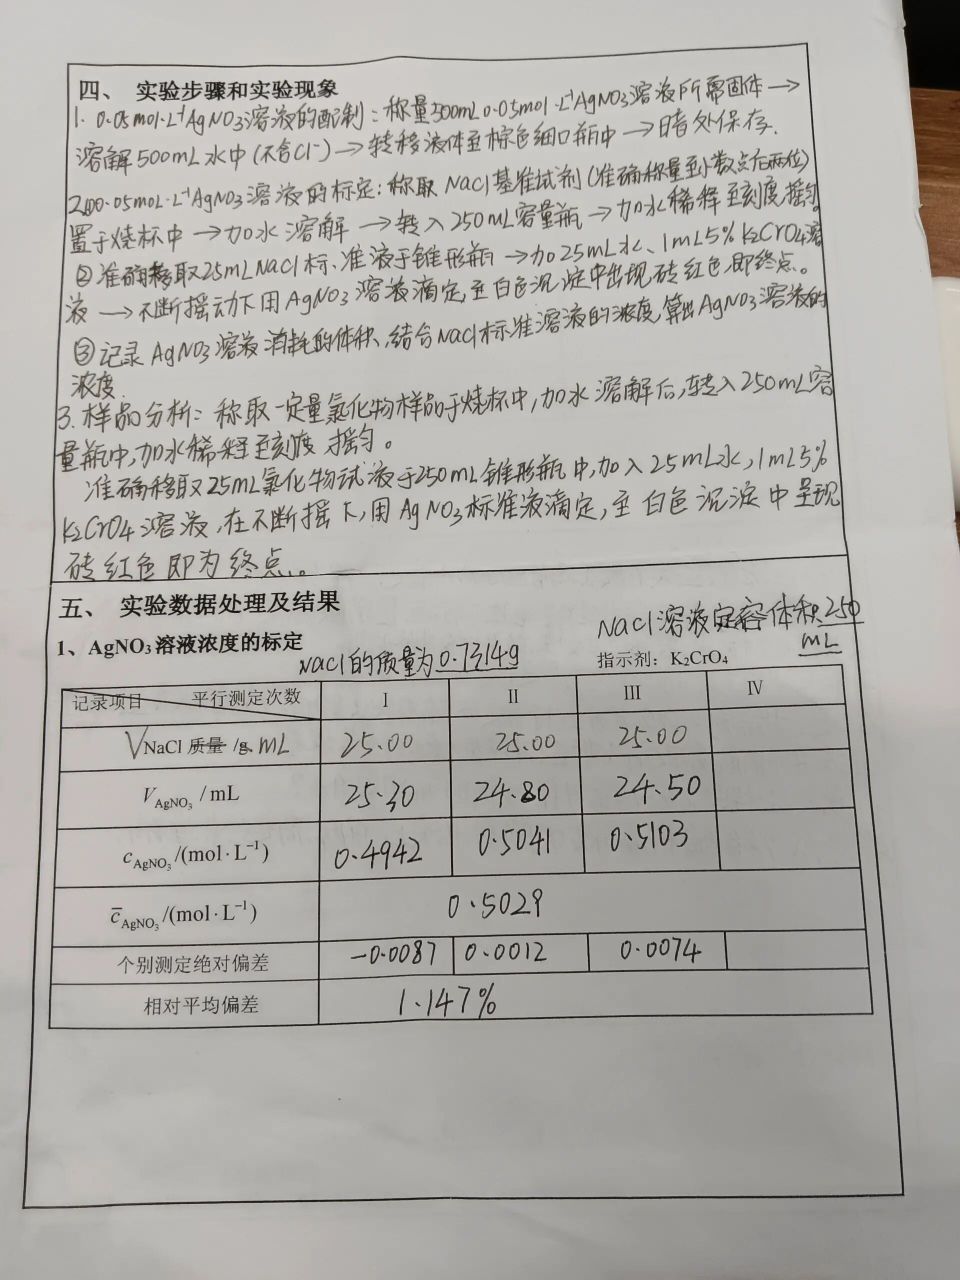 四、 实验步骤和实验现象
1. 0.05mol·L⁻¹AgNO₃溶液的配制：称量500mL0.05mol·L⁻¹AgNO₃溶液所需固体→
溶解500mL水中(不含Cl⁻)→转移液体至棕色细口瓶中→暗处保存.
2.①0.05moL·L⁻¹AgNO₃溶液的标定：称取NaCl基准试剂(准确称量至小数点后两位)
置于烧杯中→加水溶解→转入250mL容量瓶→加水稀释至刻度摇匀。
②准确移取25mLNaCl标准液于锥形瓶→加25mL水、1mL5%K₂CrO₄溶
液→不断摇动下用AgNO₃溶液滴定,至白色沉淀中出现砖红色,即终点。
③记录AgNO₃溶液消耗的体积,结合NaCl标准溶液的浓度,算出AgNO₃溶液的
浓度.
3.样品分析：称取一定量氯化物样品于烧杯中,加水溶解后,转入250mL容
量瓶中,加水稀释至刻度摇匀。
准确移取25mL氯化物试液于250mL锥形瓶中,加入25mL水,1mL5%
K₂CrO₄溶液,在不断摇下,用AgNO₃标准液滴定,至白色沉淀中呈现
砖红色即为终点。
五、 实验数据处理及结果
NaCl溶液定容体积250
mL
1、AgNO₃溶液浓度的标定
NaCl的质量为0.7314g
指示剂：K₂CrO₄
记录项目 平行测定次数 I II III IV
V NaCl 质量 /g mL 25.00 25.00 25.00
V AgNO₃ / mL 25.30 24.80 24.50
c AgNO₃ /(mol·L⁻¹) 0.4942 0.5041 0.5103
c̄ AgNO₃ /(mol·L⁻¹) 0.5029
个别测定绝对偏差 -0.0087 0.0012 0.0074
相对平均偏差 1.147%